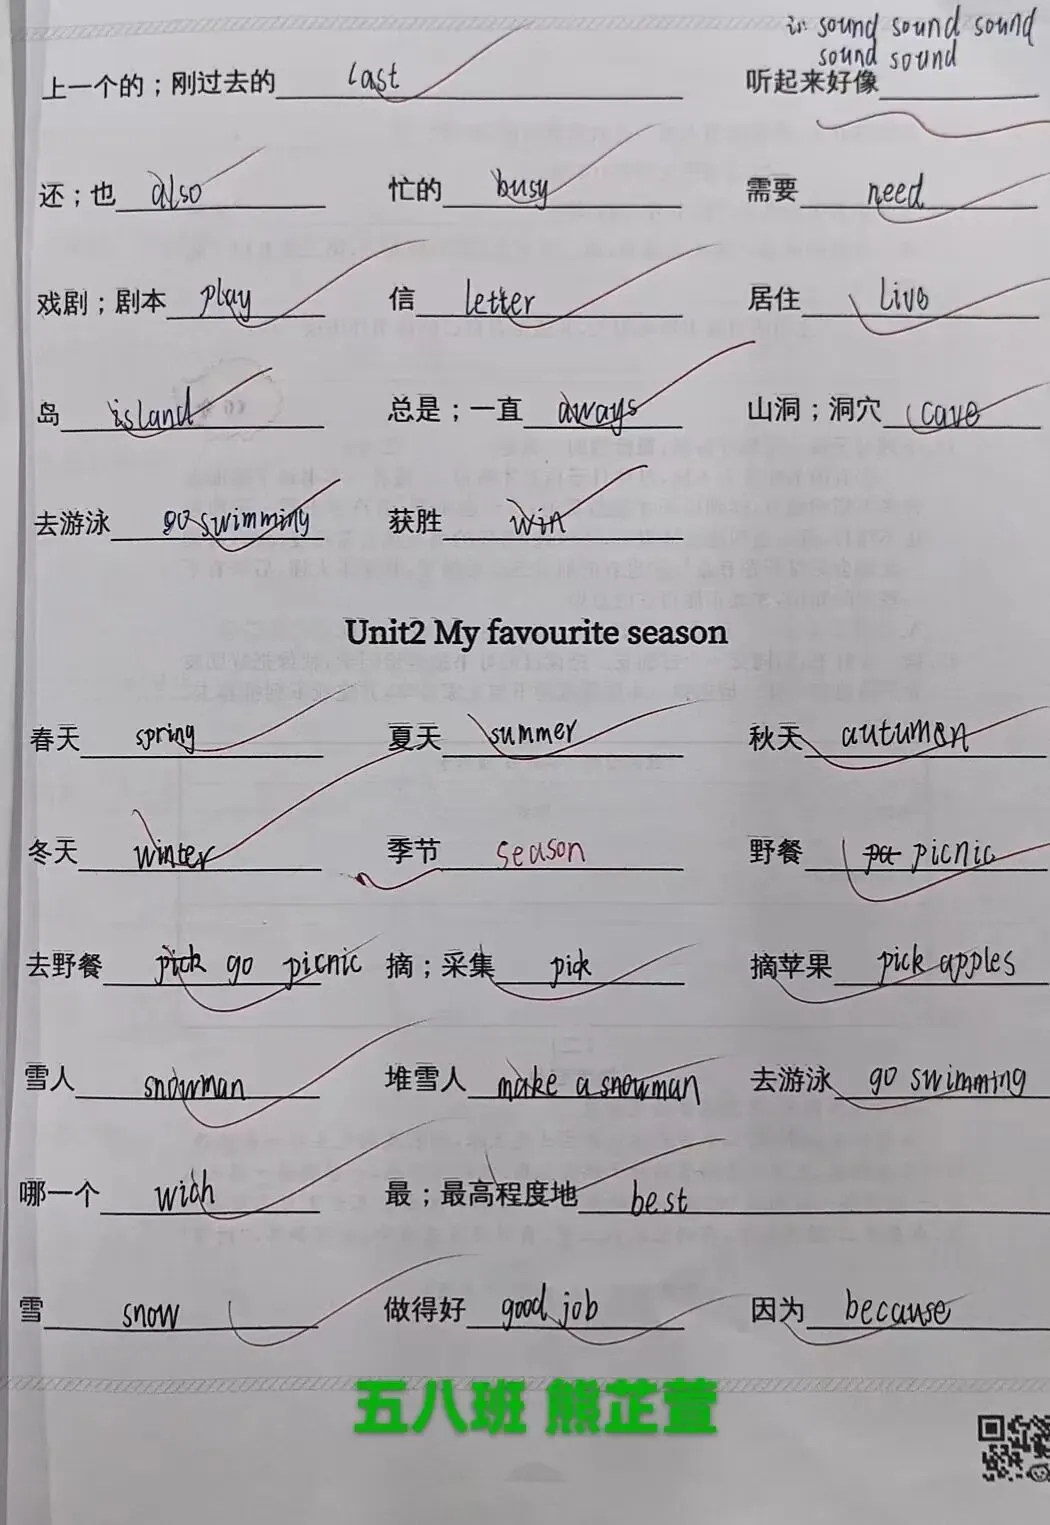 in sound sound sound
sound sound
上一个的；刚过去的 last 听起来好像
还；也 also 忙的 busy 需要 need
戏剧；剧本 play 信 letter 居住 live
岛 island 总是；一直 aways 山洞；洞穴 cave
去游泳 go swimming 获胜 win
Unit2 My favourite season
春天 spring 夏天 summer 秋天 autumen
冬天 winter 季节 season 野餐 picnic
去野餐 pick go picnic 摘；采集 pick 摘苹果 pick apples
雪人 snowman 堆雪人 make a snowman 去游泳 go swimming
哪一个 wich 最；最高程度地 best
雪 snow 做得好 good job 因为 because
五八班 熊芷萱